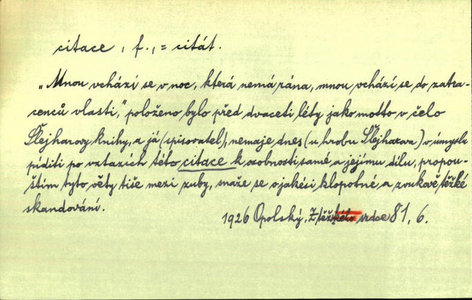 citace, f., = citát.
„Mnou vchází se v noc, která nemá rána, mnou vchází se do zatra-
cenců vlasti," položeno bylo před dvaceti léty jako motto v čelo
Šlejharovy knihy, a já (spisovatel) nemaje dnes (u hrobu Šlejharova) v úmyslu
píditi po vztazích této citace k osobnosti samé a jejímu dílu, propou-
štím byto věty tiše mezi zuby, snaže se o jakési klopotné a zvukově těžké
skandování.
1926 Opolský, Z těžkého srdce 81, 6.